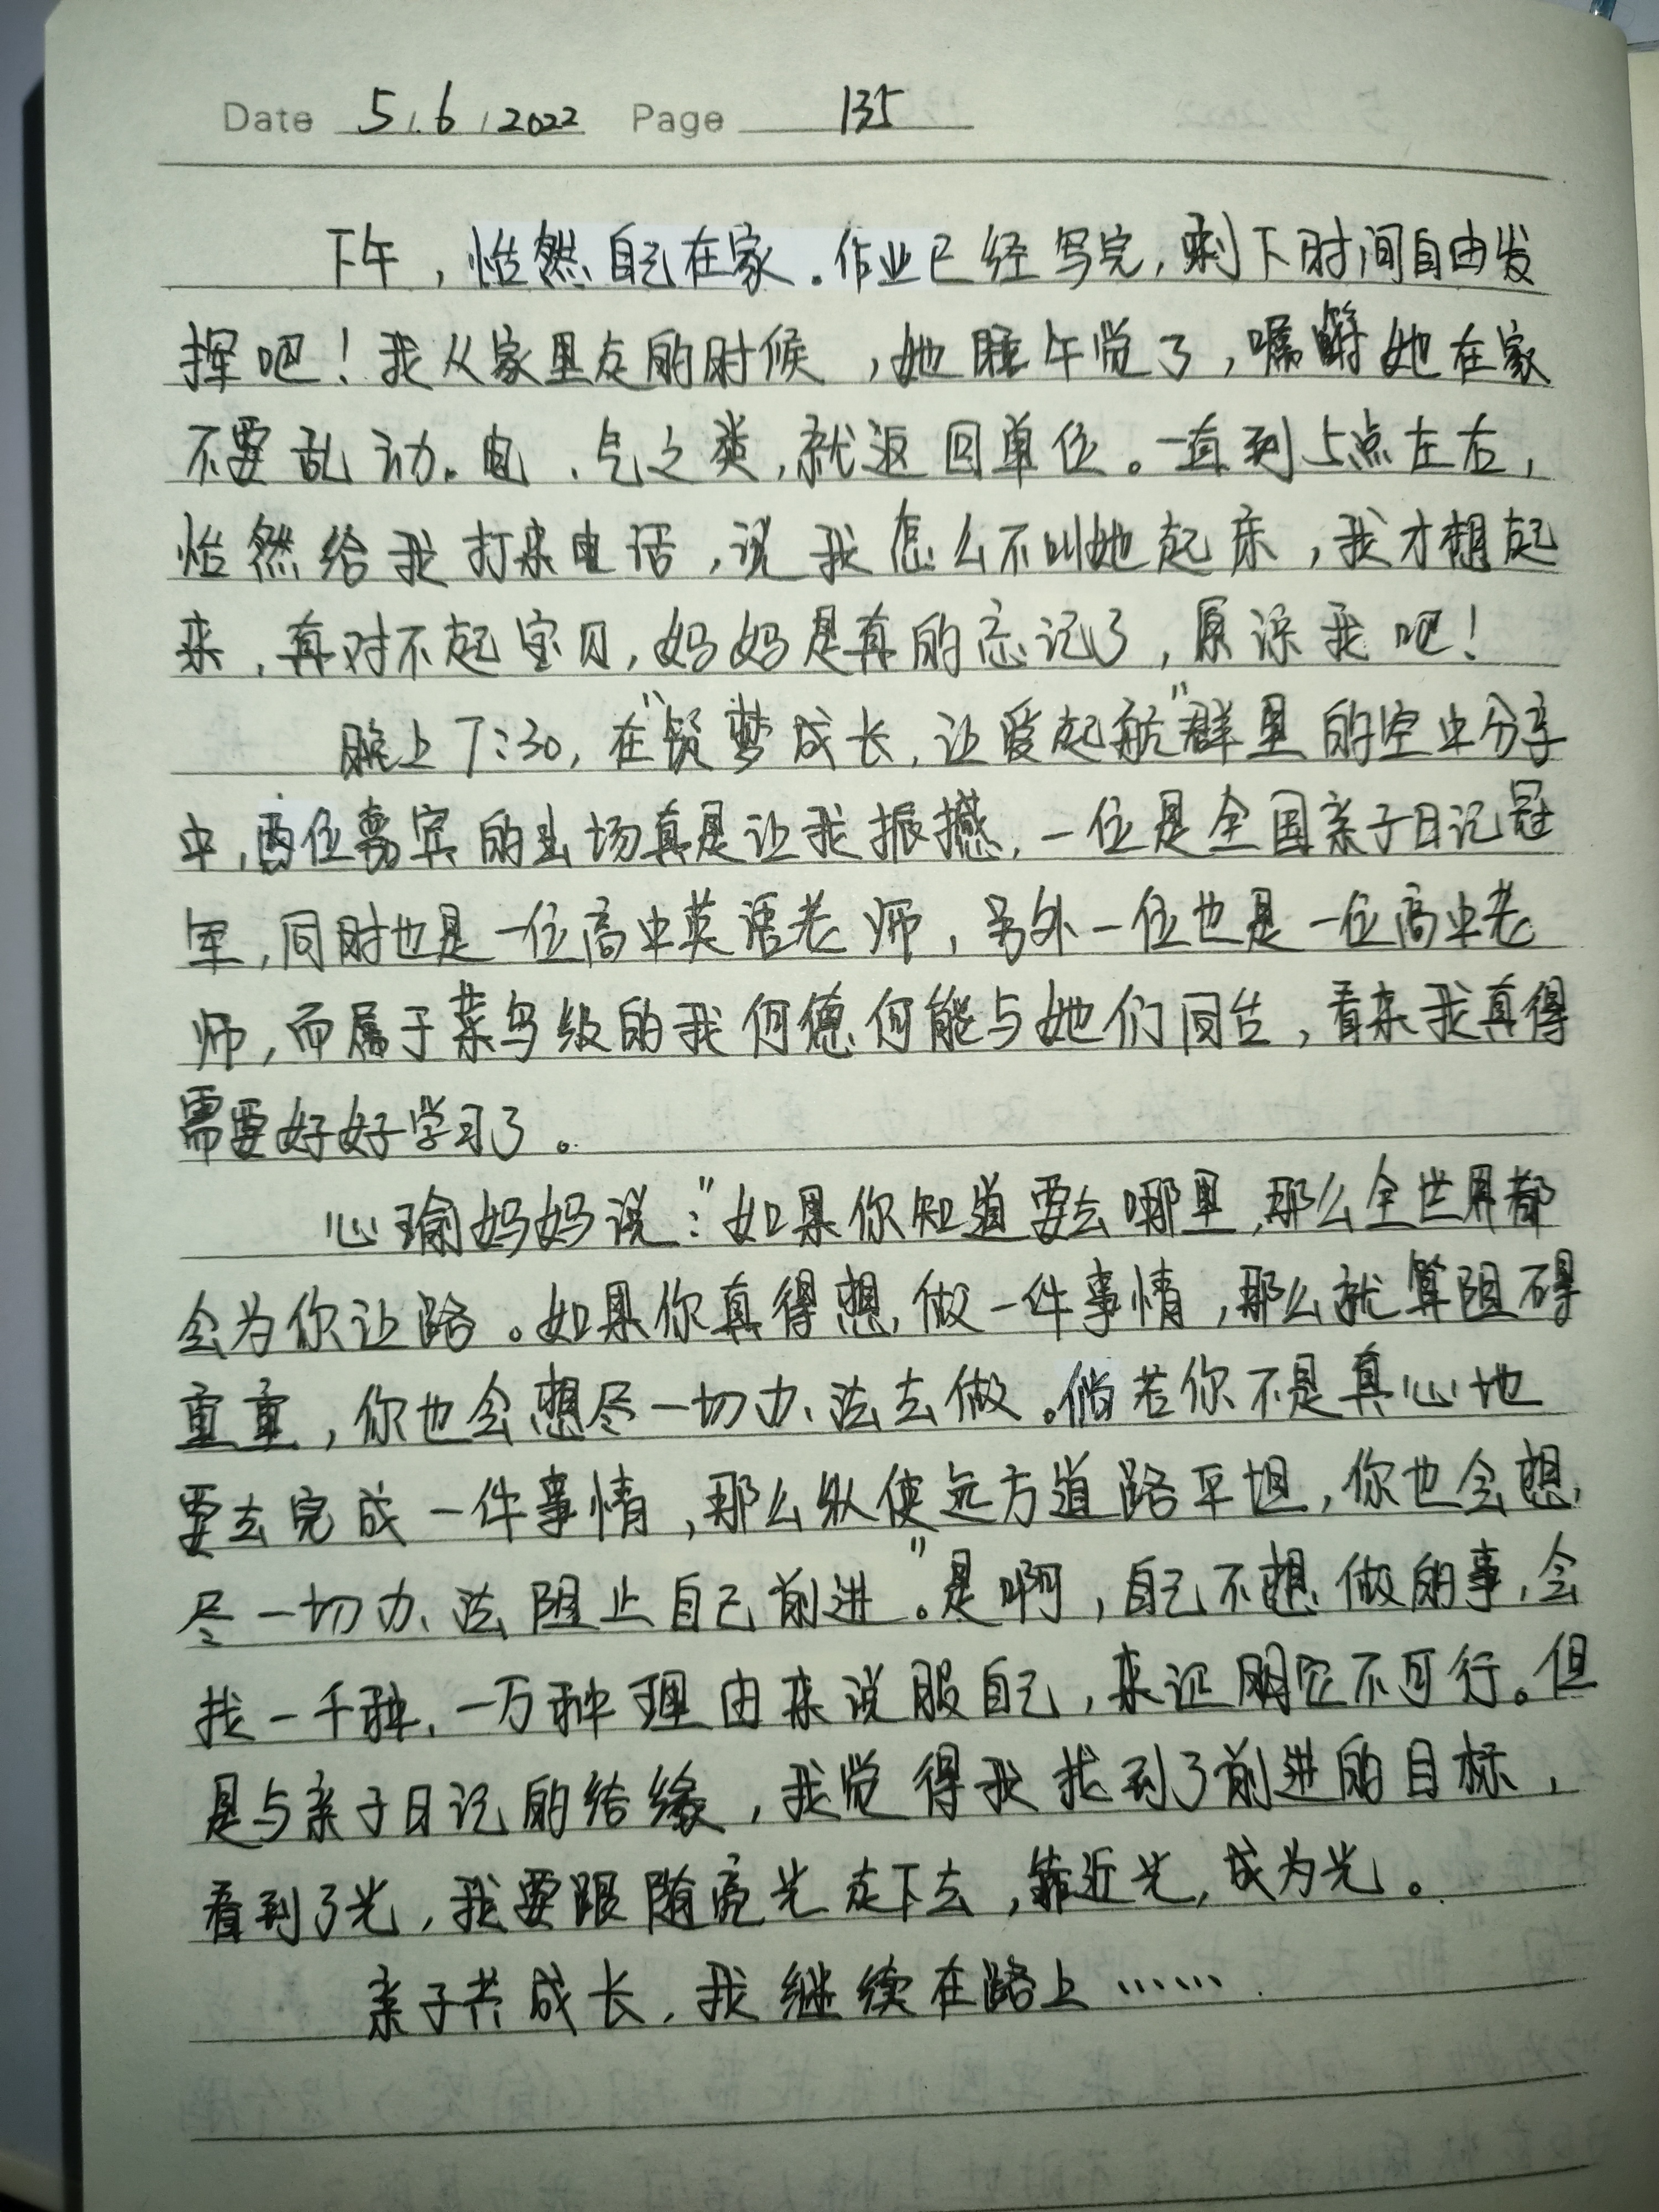 Date 5.6.2022 Page 135
下午，怡然自己在家。作业已经写完，剩下时间自由发
挥吧！我从家里走的时候，她睡午觉了，嘱咐她在家
不要乱动。电、气之类，就返回单位。一直到5点左右，
怡然给我打来电话，说我怎么不叫她起床，我才想起
来，真对不起宝贝，妈妈是真的忘记了，原谅我吧！
晚上7:30，在"筑梦成长，让爱起航"群里的空中分享
中，两位嘉宾的出场真是让我振撼，一位是全国亲子日记冠
军，同时也是一位高中英语老师，另外一位也是一位高中老
师，而属于菜鸟级的我何德何能与她们同台，看来我真得
需要好好学习了。
心瑜妈妈说："如果你知道要去哪里，那么全世界都
会为你让路。如果你真得想，做一件事情，那么就算阻碍
重重，你也会想尽一切办法去做。倘若你不是真心地
要去完成一件事情，那么纵使远方道路平坦，你也会想，
尽一切办法阻止自己前进"。是啊，自己不想做的事，会
找一千种、一万种理由来说服自己，来证明它不可行。但
是与亲子日记的结缘，我觉得我找到了前进的目标，
看到了光，我要跟随亮光走下去，靠近光，成为光。
亲子共成长，我继续在路上……